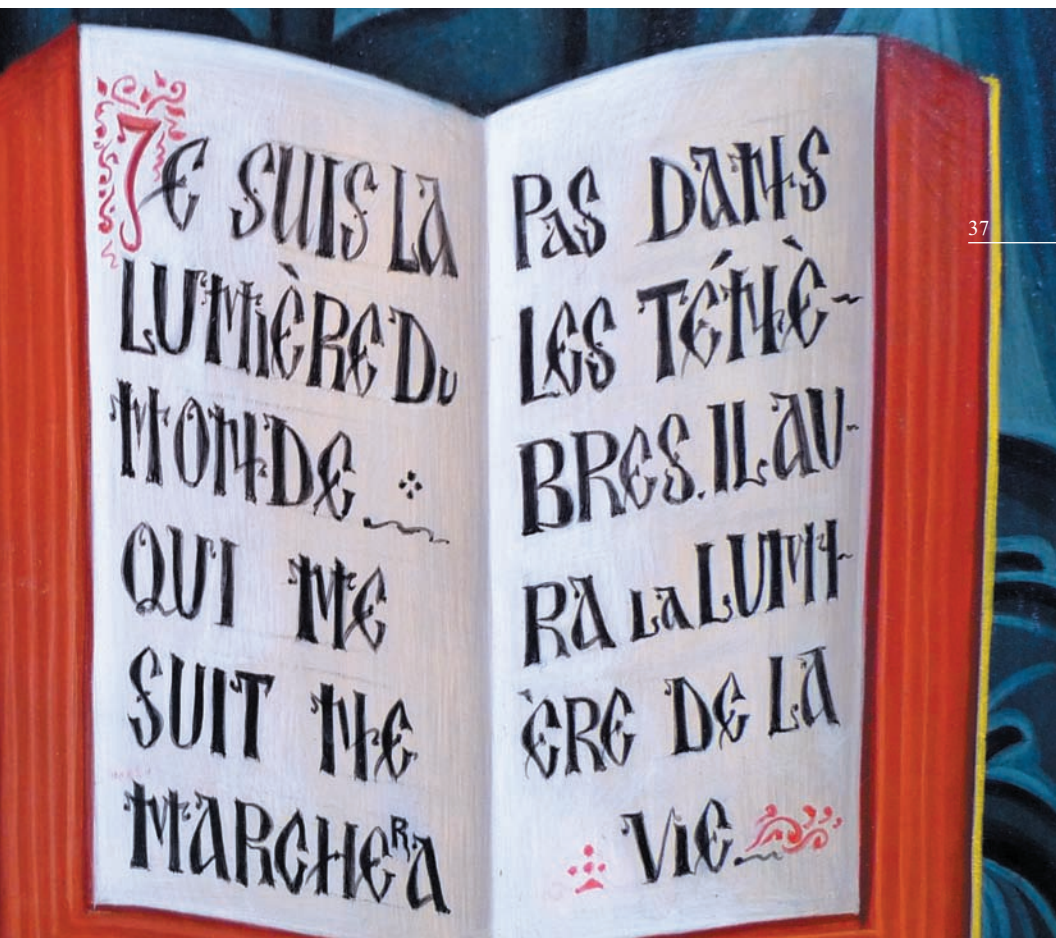 JE SUIS LA
LUMIÈRE DU
MONDE
QUI ME
SUIT NE
MARCHERA
PAS DANS
LES TÉNÈ-
BRES. IL AU-
RA LA LUMI-
ÈRE DE LA
VIE
37